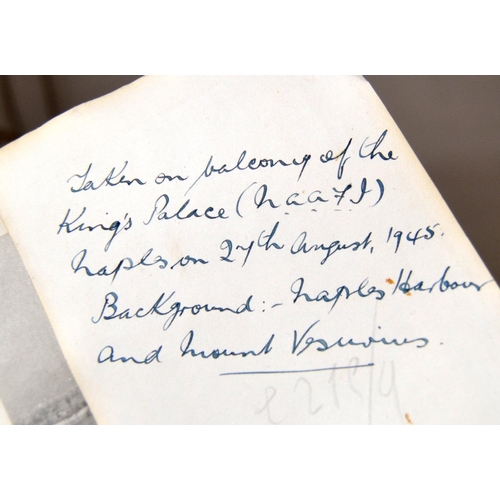 Taken on balcony of the
King's Palace (N.A.A.F.I)
Naples on 27th August, 1945.
Background:- Naples Harbour
and Mount Vesuvius.